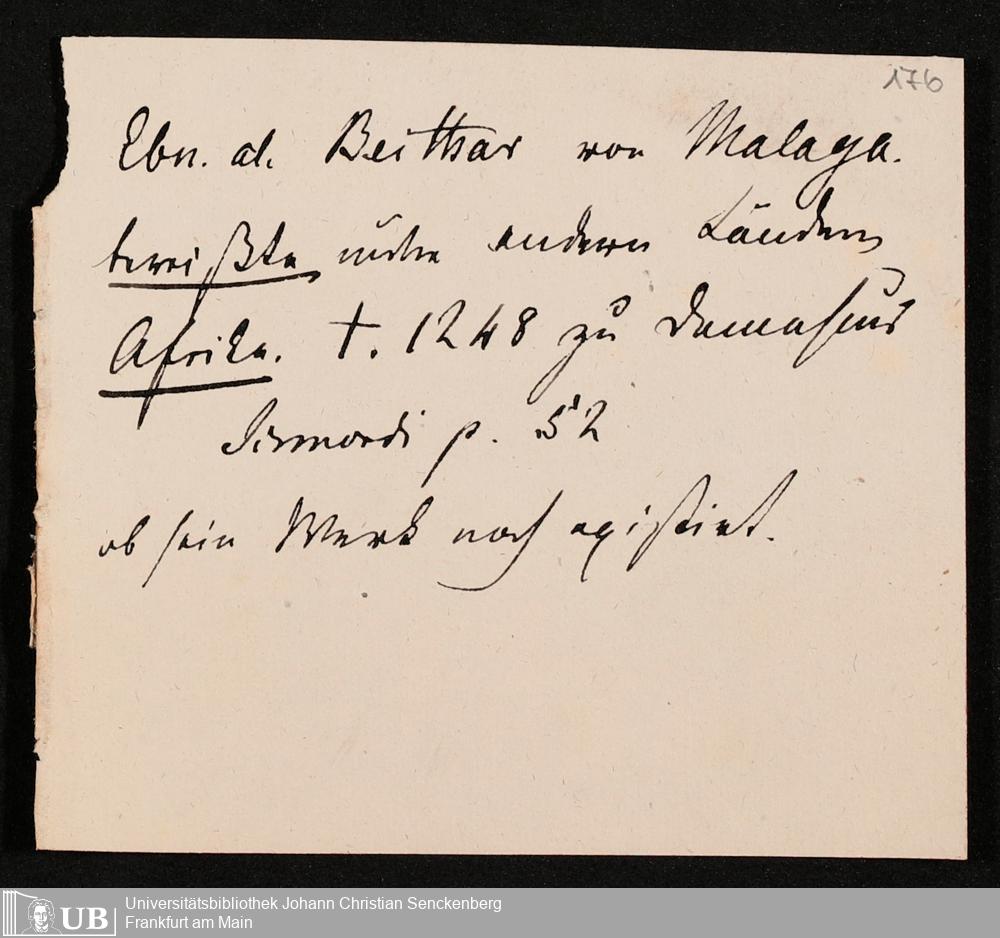 176
Ebn. al. Beithar von Malaga.
bereißte unter andern Ländern
Afrika. †. 1248 zu Damascus
Sismondi p. 52
ob sein Werk noch existirt.
UB Universitätsbibliothek Johann Christian Senckenberg
Frankfurt am Main